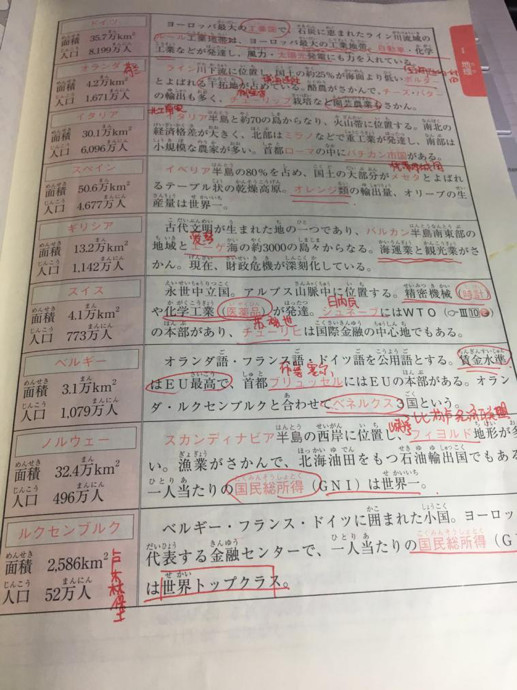 ドイツ
面積 35.7万km²
人口 8,199万人
ヨーロッパ最大の工業国で、石炭に恵まれたライン川流域の
ルール工業地帯は、ヨーロッパ最大の工業地帯。自動車・化学
工業などが発達し、風力・太陽光発電にも力を入れている。
オランダ
面積 4.2万km²
人口 1,671万人
ライン川下流に位置し、国土の約25%が海面より低いポルダー
とよばれる干拓地が占めている。酪農がさかんで、チーズ・バター
の輸出も多く、チューリップ栽培など園芸農業もさかん。
イタリア
面積 30.1万km²
人口 6,096万人
イタリア半島と約70の島からなり、火山帯に位置する。南北の
経済格差が大きく、北部はミラノなどで重工業が発達し、南部は
小規模な農家が多い。首都ローマの中にバチカン市国がある。
スペイン
面積 50.6万km²
人口 4,677万人
イベリア半島の80%を占め、国土の大部分がメセタとよばれ
るテーブル状の乾燥高原。オレンジ類の輸出量、オリーブの生
産量は世界一。
ギリシア
面積 13.2万km²
人口 1,142万人
古代文明が生まれた地の一つであり、バルカン半島南東部の
地域とエーゲ海の約3000の島々からなる。海運業と観光業がさ
かん。現在、財政危機が深刻化している。
スイス
面積 4.1万km²
人口 773万人
永世中立国。アルプス山脈中に位置する。精密機械(時計)
や化学工業(医薬品)が発達。ジュネーブにはWTO(☞Ⅲ10
の本部があり、チューリヒは国際金融の中心地でもある。
日内瓦
苏黎世
ベルギー
面積 3.1万km²
人口 1,079万人
オランダ語・フランス語・ドイツ語を公用語とする。賃金水準
はEU最高で、首都ブリュッセルにはEUの本部がある。オラン
ダ・ルクセンブルクと合わせてベネルクス3国という。
ノルウェー
面積 32.4万km²
人口 496万人
スカンディナビア半島の西岸に位置し、フィヨルド地形が多
い。漁業がさかんで、北海油田をもつ石油輸出国でもある
一人当たりの国民総所得(GNI)は世界一。
ルクセンブルク
面積 2,586km²
人口 52万人
ベルギー・フランス・ドイツに囲まれた小国。ヨーロッ
代表する金融センターで、一人当たりの国民総所得(G
は世界トップクラス。
1
地理